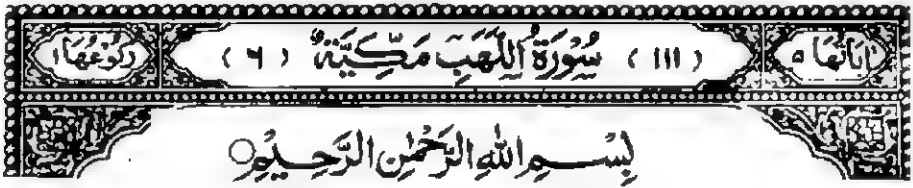 اٰيَاتُهَا ٥ (١١١) سُوْرَةُ اللَّهَبِ مَكِّيَّةٌ (٦) رُكُوْعُهَا ١
بِسْمِ اللهِ الرَّحْمٰنِ الرَّحِيْمِ